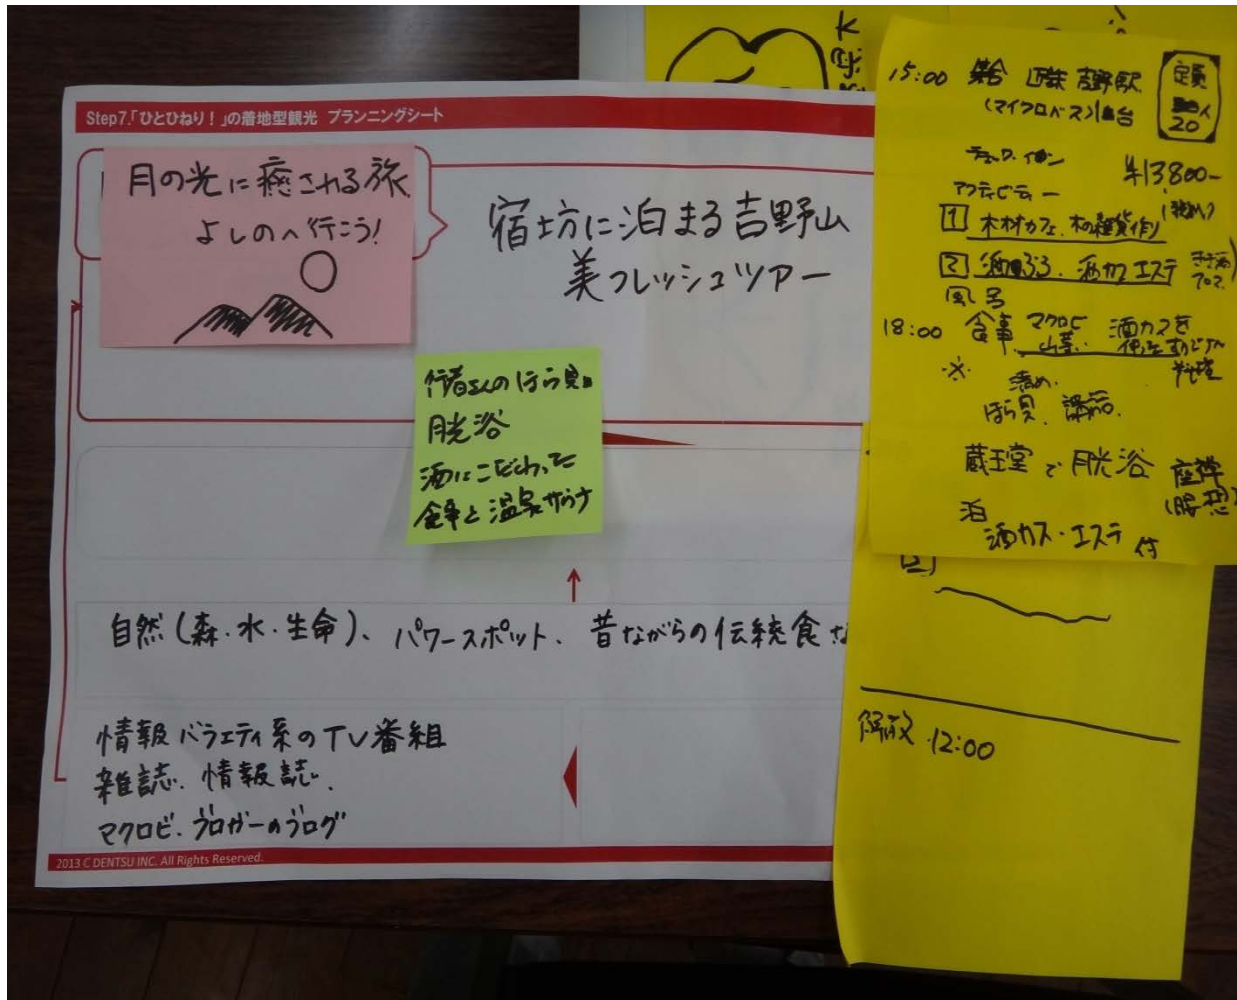 Step7.「ひとひねり！」の着地型観光 プランニングシート
月の光に癒される旅
よしのへ行こう!
宿坊に泊まる吉野山
美フレッシュツアー
行者さんのほら貝
月光浴
酒にこだわった
食事と温泉サウナ
自然(森・水・生命)、パワースポット、昔ながらの伝統食な
情報バラエティ系のTV番組
雑誌、情報誌、
マクロビ、ブロガーのブログ
2013 C DENTSU INC. All Rights Reserved.
15:00 集合 近鉄 吉野駅
(マイクロバス)1台
定員
20
チェックイン
¥13800-
アクティビティー
1 木材カフェ、木の雑貨作り
2 酒ぶろ、酒カスエステ
風呂
18:00 食事 マクロビ 酒カスを
山菜 使った
料理
※ 清め
ほら貝
蔵王堂で月光浴 座禅
(瞑想)
泊
酒カス・エステ 付
2
解散 12:00